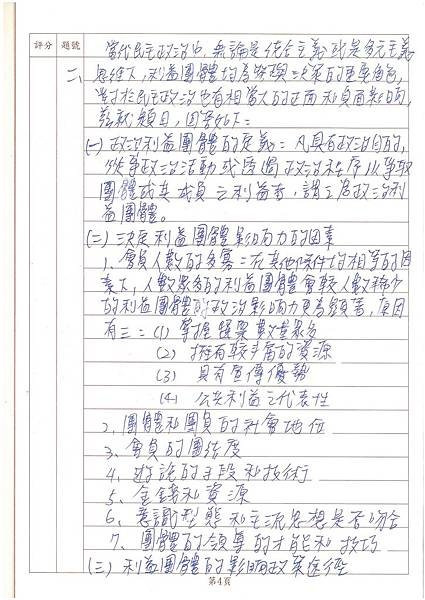 評分 題號
當代民主政治中,無論是統合主義或是多元主義
二、思維下,利益團體均為參與決策的重要角色,
對於民主政治也有相當大的正面和負面影響,
茲就題目,回答如下:
(一)政治利益團體的定義:凡具有政治目的,
從事政治活動或透過政治程序以爭取
團體或其成員之利益者,謂之為政治利
益團體。
(二)決定利益團體影響力的因素
1、會員人數的多寡:在其他條件均相等的因
素下,人數眾多的利益團體會較人數稀少
的利益團體的政治影響力更為顯著,原因
有三:(1)掌握選票數量最多
(2) 擁有較多層的資源
(3) 具有宣傳優勢
(4) 公共利益之代表性
2、團體和團員的社會地位
3、會員的團結度
4、遊說的手段和技術
5、金錢和資源
6、意識型態和主流思想是否吻合
7、團體的領導的才能和技巧
(三)利益團體的影響政策途徑
第4頁